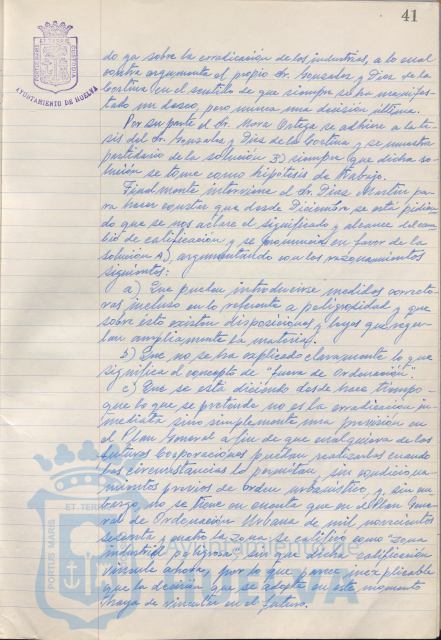 41
AYUNTAMIENTO DE HUELVA
do ya sobre la erradicación de las industrias, a lo cual
contra argumenta el propio Sr. Gonzalez y Diaz de la
Cortina en el sentido de que siempre se ha manifes-
tado un deseo, pero nunca una decisión última.
Por su parte el Sr. Mora Ortega se adhiere a la te-
sis del Sr. Gonzalez y Diaz de la Cortina y se muestra
partidario de la solución 3) siempre que dicha so-
lución se tome como hipótesis de trabajo.
Finalmente interviene el Sr. Diaz Martin pa-
ra hacer constar que desde Diciembre se está pidien-
do que se nos aclare el significado y alcance del cam-
bio de calificación y se pronuncia en favor de la
solución A), argumentando con los razonamientos
siguientes:
a) Que pueden introducirse medidas correcto-
ras incluso en lo referente a peligrosidad y que
sobre esto existen disposiciones y leyes que regu-
lan ampliamente la materia.
b) Que no se ha explicado claramente lo que
significa el concepto de "fuera de Ordenación".
c) Que se está diciendo desde hace tiempo
que lo que se pretende no es la erradicación in-
mediata sino simplemente una previsión en
el Plan General a fin de que cualquiera de las
futuras Corporaciones puedan realizarlas cuando
las circunstancias lo permitan, sin condiciona-
mientos previos de orden urbanístico, y sin em-
bargo no se tiene en cuenta que en el Plan Gene-
ral de Ordenación Urbana de mil novecientos
sesenta y cuatro la zona se calificó como "zona
industrial peligrosa" sin que dicha calificación
vincule ahora, por lo que parece inexplicable
que la decisión que se adopte en este momento
haya de vincular en el futuro.
PORTUS MARIS
ET TERRAE
HUELVA